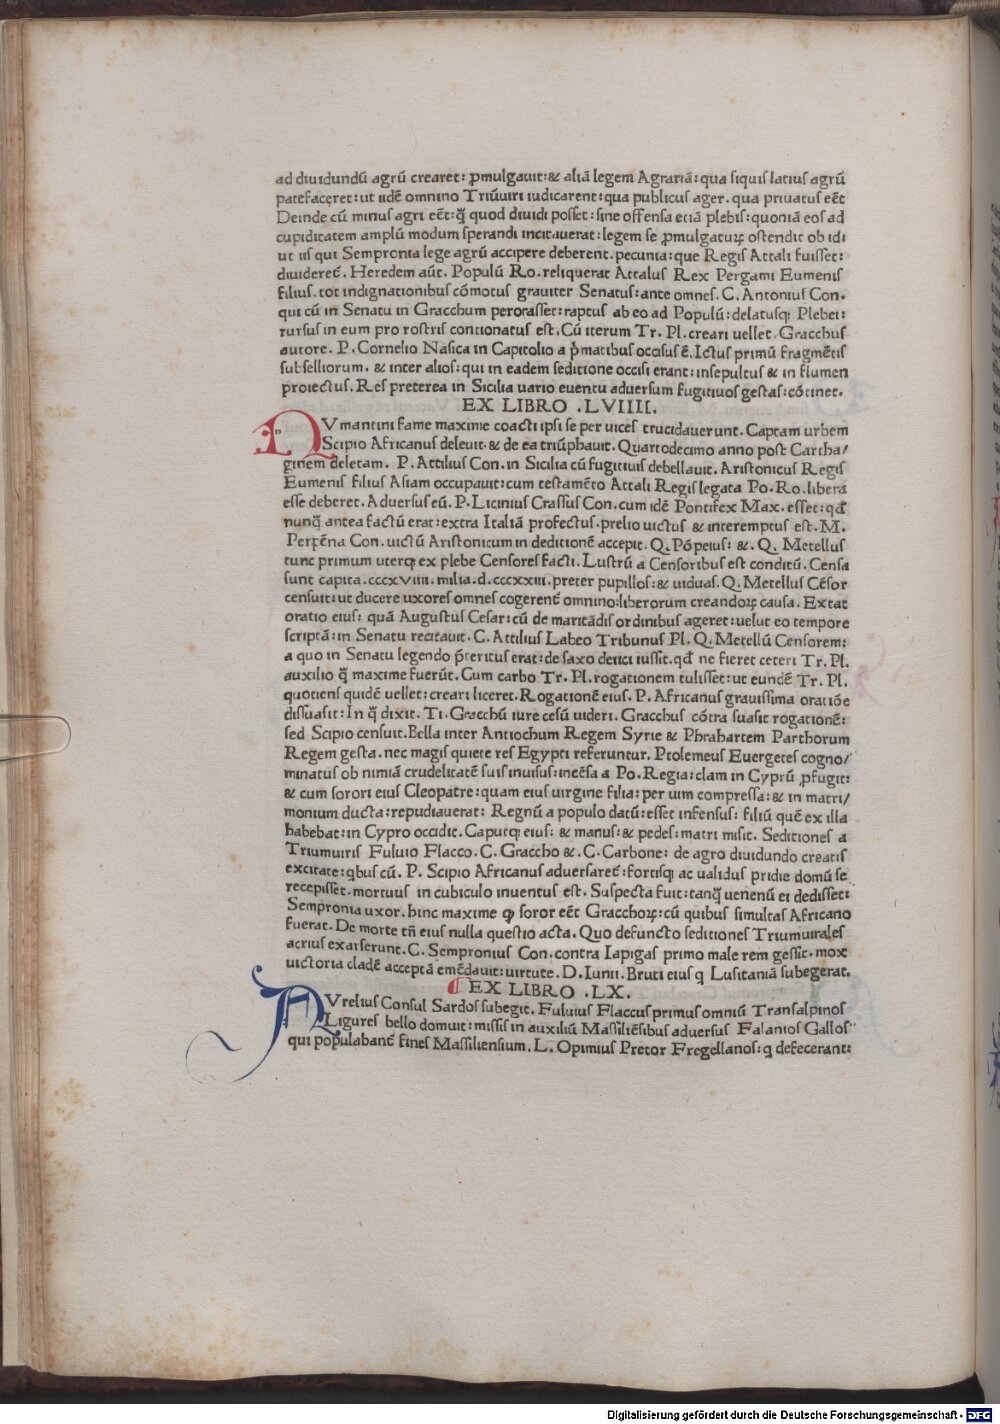 ad diuidundũ agrũ crearet: ꝓmulgauit: & aliã legem Agrariã: qua siquis latius agrũ
patefaceret: ut iidẽ omnino Triũuiri iudicarent: qua publicus ager. qua priuatus eẽt
Deinde cũ minus agri eẽt: q̃ quod diuidi posset: sine offensa etiã plebis: quoniã eos ad
cupiditatem amplũ modum sperandi incitauerat: legem se ꝓmulgaturꝝ ostendit ob id:
ut iis qui Sempronia lege agrũ accipere deberent. pecunia: que Regis Attali fuisset:
diuideret̃. Heredem aũt. Populũ Ro. reliquerat Attalus Rex Pergami Eumenis
filius. tot indignationibus cõmotus grauiter Senatus: ante omnes. C. Antonius Con.
qui cũ in Senatu in Gracchum perorasset: raptus ab eo ad Populũ: delatusqꝫ Plebei:
rursus in eum pro rostris contionatus est. Cũ iterum Tr. Pl. creari uellet. Gracchus
autore. P. Cornelio Nasica in Capitolio a p̃matibus occisus ẽ. Ictus primũ fragmẽtis
subselliorum. & inter alios: qui in eadem seditione occisi erant: insepultus & in flumen
proiectus. Res preterea in Sicilia uario euentu aduersum fugitiuos gestas: cõtinet.
EX LIBRO .LVIIII.
NVmantini fame maxime coacti ipsi se per uices trucidauerunt. Captam urbem
Scipio Africanus deleuit. & de ea triũphauit. Quartodecimo anno post Cartha/
ginem deletam. P. Attilius Con. in Sicilia cũ fugitiuis debellauit. Aristonicus Regis
Eumenis filius Asiam occupauit: cum testamẽto Attali Regis legata Po. Ro. libera
esse deberet. Aduersus eũ. P. Licinius Crassus Con. cum idẽ Pontifex Max. esset: qđ
nunq̃ antea factũ erat: extra Italiã profectus. prelio uictus & interemptus est. M.
Perpẽna Con. uictũ Aristonicum in deditionẽ accepit. Q. Põpeius: &. Q. Metellus
tunc primum uterqꝫ ex plebe Censores facti. Lustrũ a Censoribus est conditũ. Censa
sunt capita. cccxviiii. milia. d. cccxxiii. preter pupillos: & uiduas. Q. Metellus Cẽsor
censuit: ut ducere uxores omnes cogerent̃ omnino: liberorum creandorꝝ causa. Extat
oratio eius: quã Augustus Cesar: cũ de maritãdis ordinibus ageret: uelut eo tempore
scriptã: in Senatu recitauit. C. Attilius Labeo Tribunus Pl. Q. Metellũ Censorem:
a quo in Senatu legendo p̃teritus erat: de saxo deiici iussit. qđ ne fieret ceteri Tr. Pl.
auxilio q̃ maxime fuerũt. Cum carbo Tr. Pl. rogationem tulisset: ut eundẽ Tr. Pl.
quotiens quidẽ uellet: creari liceret. Rogationẽ eius. P. Africanus grauissima oratiõe
dissuasit: In q̃ dixit. Ti. Gracchũ iure cesũ uideri. Gracchus cõtra suasit rogationẽ:
sed Scipio censuit. Bella inter Antiochum Regem Syrie & Phrahartem Parthorum
Regem gesta. nec magis quiete res Egypti referuntur. Ptolemeus Euergetes cogno/
minatus ob nimiã crudelitatẽ suis inuisus: incẽsa a Po. Regia: clam in Cyprũ ꝓfugit:
& cum sorori eius Cleopatre: quam eius uirgine filia: per uim compressa: & in matri/
monium ducta: repudiauerat: Regnũ a populo datũ: esset infensus: filiũ quẽ ex illa
habebat: in Cypro occidit. Caputqꝫ eius: & manus: & pedes: matri misit. Seditiones a
Triumuiris Fuluio Flacco. C. Graccho &. C. Carbone: de agro diuidundo creatis
excitate: qbus cũ. P. Scipio Africanus aduersaret̃: fortisqꝫ ac ualidus pridie domũ se
recepisset. mortuus in cubiculo inuentus est. Suspecta fuit: tanq̃ uenenũ ei dedisset:
Sempronia uxor. hinc maxime ꝙ soror eẽt Gracchorꝝ: cũ quibus simultas Africano
fuerat. De morte tñ eius nulla questio acta. Quo defuncto seditiones Triumuirales
acrius exarserunt. C. Sempronius Con. contra Iapigas primo male rem gessit. mox
uictoria cladẽ acceptã emẽdauit: uirtute. D. Iunii. Bruti eius q Lusitaniã subegerat.
EX LIBRO .LX.
AVrelius Consul Sardos subegit. Fuluius Flaccus primus omniũ Transalpinos
Ligures bello domuit: missis in auxiliũ Massiliẽsibus aduersus Falanios Gallos
qui populabant̃ fines Massiliensium. L. Opimius Pretor Fregellanos: q defecerant:
Digitalisierung gefördert durch die Deutsche Forschungsgemeinschaft - DFG